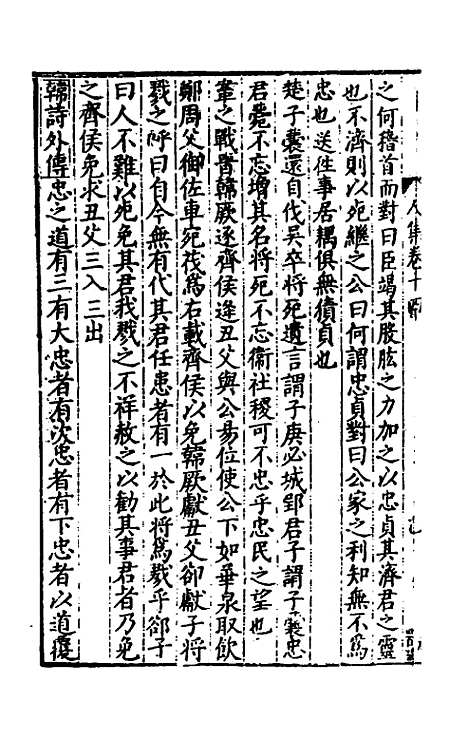 之何稽首而對曰臣竭其股肱之力加之以忠貞其濟君之靈
也不濟則以死繼之公曰何謂忠貞對曰公家之利知無不爲
忠也送徃事居耦俱無猜貞也
楚子囊還自伐吳卒將死遺言謂子庚必城郢君子謂子囊忠
君薨不忘增其名將死不忘衞社稷可不忠乎忠民之望也
鞌之戰晋韓厥逐齊侯逢丑父與公昜位使公下如華泉取飲
鄭周父御佐車宛茷爲右載齊侯以免韓厥獻丑父郤獻子將
戮之呼曰自今無有代其君任患者有一於此將爲戮乎郤子
曰人不難以死免其君我戮之不祥赦之以勸其事君者乃免
之齊侯免求丑父三入三出
韓詩外傳忠之道有三有大忠者有次忠者有下忠者以道覆
集卷十